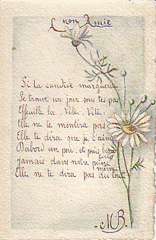 mon Amie
Si la candide marguerite
Se trouve un jour sous tes pas
Effeuille la vite. vite.
Elle ne te mentira pas
Elle te dira que je t'aime
D'abord un peu. et puis
jamais dans notre peine même
Elle ne te dira pas du tout
MB.